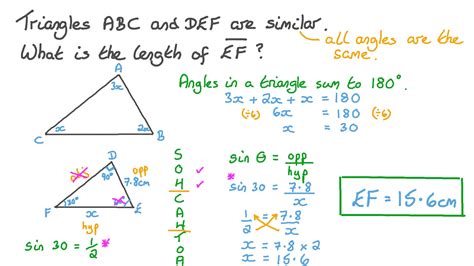 Triangles ABC and DEF are similar.
What is the length of EF ?
all angles are the same.
A
3x
x
2x
C
B
Angles in a triangle sum to 180°.
3x + 2x + x = 180
(÷6) 6x = 180 (÷6)
x = 30
D
90°
opp
7.8cm
F
30°
E
x
hyp
sin 30 = 1/2 *
S
O
H
C
A
H
T
O
A
sin θ = opp/hyp
* sin 30 = 7.8/x
1/2 = 7.8/x
x = 7.8 x 2
x = 15.6
EF = 15.6cm